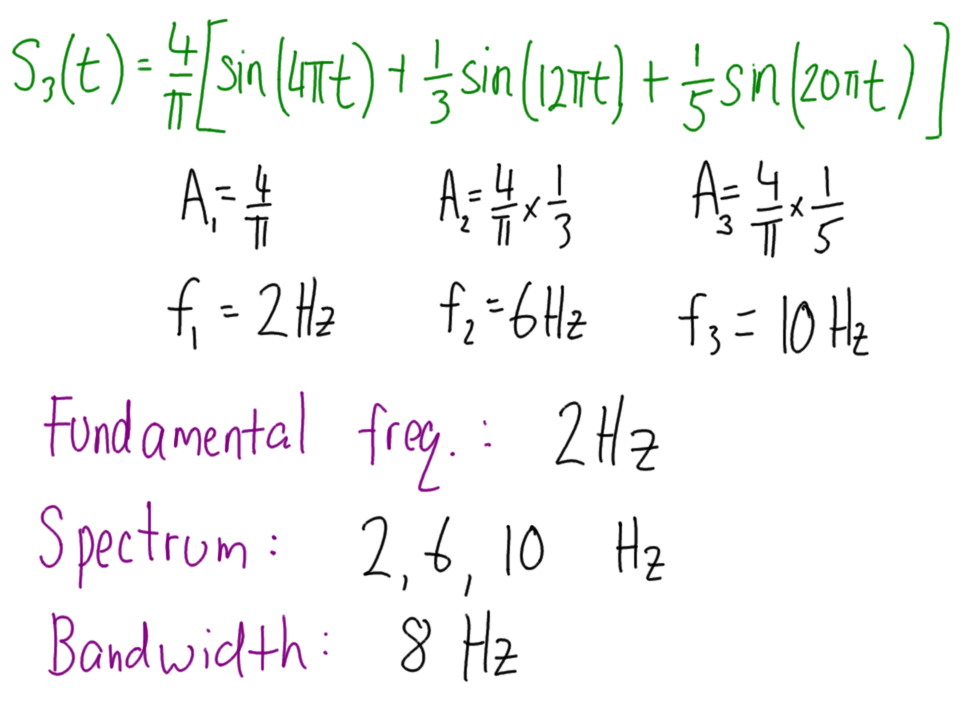 S₃(t) = 4/π [sin(4πt) + 1/3 sin(12πt) + 1/5 sin(20πt)]
A₁ = 4/π A₂ = 4/π × 1/3 A₃ = 4/π × 1/5
f₁ = 2 Hz f₂ = 6 Hz f₃ = 10 Hz
Fundamental freq. : 2 Hz
Spectrum : 2, 6, 10 Hz
Bandwidth : 8 Hz